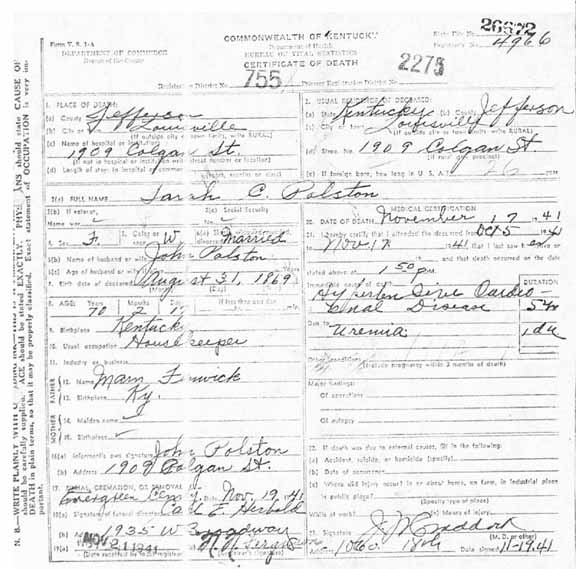 26672
Form V. S. 1-A
COMMONWEALTH OF KENTUCKY
State File No.
DEPARTMENT OF COMMERCE
Department of Health
Registrar's No. 4966
Bureau of the Census
BUREAU OF VITAL STATISTICS
CERTIFICATE OF DEATH
2275
Registration District No. 755
Primary Registration District No.
1. PLACE OF DEATH:
(a) County Jefferson
(b) City or Louisville
(If outside city or town limits, write RURAL)
(c) Name of hospital or institution:
1909 Colgan St.
(If not in hospital or institution street number or location)
(d) Length of stay: In hospital or
2. USUAL RESIDENCE OF DECEASED:
(a) State Kentucky (b) County Jefferson
(c) City or Louisville
(If outside city or town limits, write RURAL)
(d) Street No. 1909 Colgan St.
(If rural give precinct)
(e) If foreign born, how long in U. S. A.?
3(a) FULL NAME Sarah C. Polston
3(b) If veteran,
Name war
3(c) Social Security
No.
4. Sex F.
5. Color or W
Married
6(b) Name of husband or wife John Polston
6(c) Age of husband or wife
7. Birth date of deceased August 31, 1869
8. AGE: Years Months Days If less than one day
9. Birthplace Kentucky
10. Usual occupation Housekeeper
11. Industry or business
FATHER
12. Name
13. Birthplace Ky.
MOTHER
14. Maiden name
15. Birthplace
16(a) Informant's own signature John Polston
(b) Address 1909 Colgan St.
17. BURIAL, CREMATION, OR REMOVAL
Evergreen Cem Nov. 19, 41
18(a) Signature of funeral director Carl E. Herbold
(b) 1935 W Broadway
19(a) NOV 21 1941
(Date received by local registrar)
(Registrar's signature)
MEDICAL CERTIFICATION
20. DATE OF DEATH November 17 1941
21. I hereby certify that I attended the deceased from Oct 5 1941
to Nov 17 1941 that I last saw h er
and that death occurred on the date
stated above at 1 50 p m.
Immediate cause of death
DURATION
Hypertensive Cardio
Renal Disease 5 yr
Due to
Uremia 1 da
Other conditions
(Include pregnancy within 3 months of death)
Major findings:
Of operations
Of autopsy
22. If death was due to external causes, fill in the following:
(a) Accident, suicide, or homicide (specify)
(b) Date of occurrence
(c) Where did injury occur? In or about home, on farm, in industrial place
in public place?
(Specify type of place)
While at work? (e) Means of injury
23. Signature
(M. D. or other)
Address Date signed 11-19.41
N. B.—WRITE PLAINLY
should be carefully supplied. AGE should be stated EXACTLY.
should state CAUSE OF
DEATH in plain terms, so that it may be properly classified. Exact statement of OCCUPATION is very im-
portant.